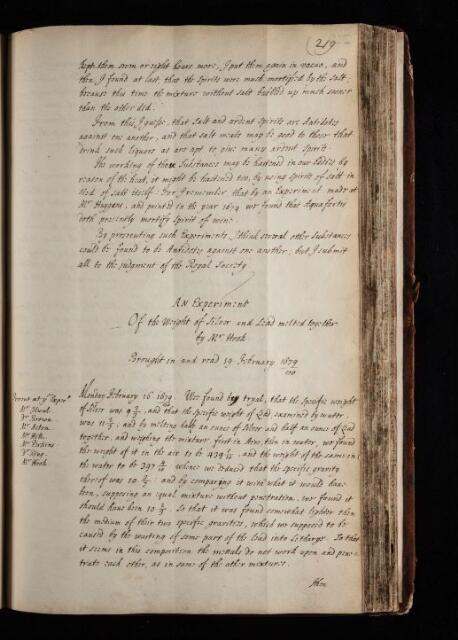 219
kept them seven or eight hours more, I put them again in vacuo, and
then I found at last, that the Spirits were much mortified by the salt,
because this time the mixture without salt bubbled up much sooner
than the other did.
From this, I guesse, that Salt and ardent Spirits are Antidotes
against one another, and that salt meats may be good to those that
drink such liquors as are apt to give many ardent Spirits
The working of these Substances may be hastened in our bodies by
reason of the heat, or might be hastened too, by using Spirit of salt in
sted of salt itself: For I remember, that by an Experiment made at
Mr Huygens, and printed in the year 1674 we found that Aqua fortis
doth presently mortify Spirit of wine.
By prosecuting such Experiments, I think several other Substances
could be found to be Antidotes against one another; but I submit
all to the judgment of the Royal Society
An Experiment
Of the Weight of Silver and Lead melted together
by Mr Hook
Brought in and read 19 February 1679/80
Monday February 16 1679. Was found by tryal, that the specific weight
Present at ye Exper.
of Silver was 9 , and that the specific weight of Lead, examined by water,
Mr Henshaw
Dr Brown
was 11 ; and by melting half an ounce of Silver and half an ounce of Lead
Mr Aston
together, and weighing the mixture first in Aere, then in water, we found
Mr Hill
the weight of it in the air to be 439 , and the weight of the same in
Mr Perkins
the water to be 397 : whence we deduced that the specific gravity
Dr King
Mr Hook
thereof was 10 ; and by comparing it with what it would have
been, supposing an equal mixture without penetration, we found it
should have been 10 . So that it was found somewhat lighter then
the medium of their two specific gravities, which we supposed to be
caused by the wasting of some part of the Lead into Letharge. In this
it seems in this composition the metals do not work upon and pene-
trate each other, as in some of the other mixtures.